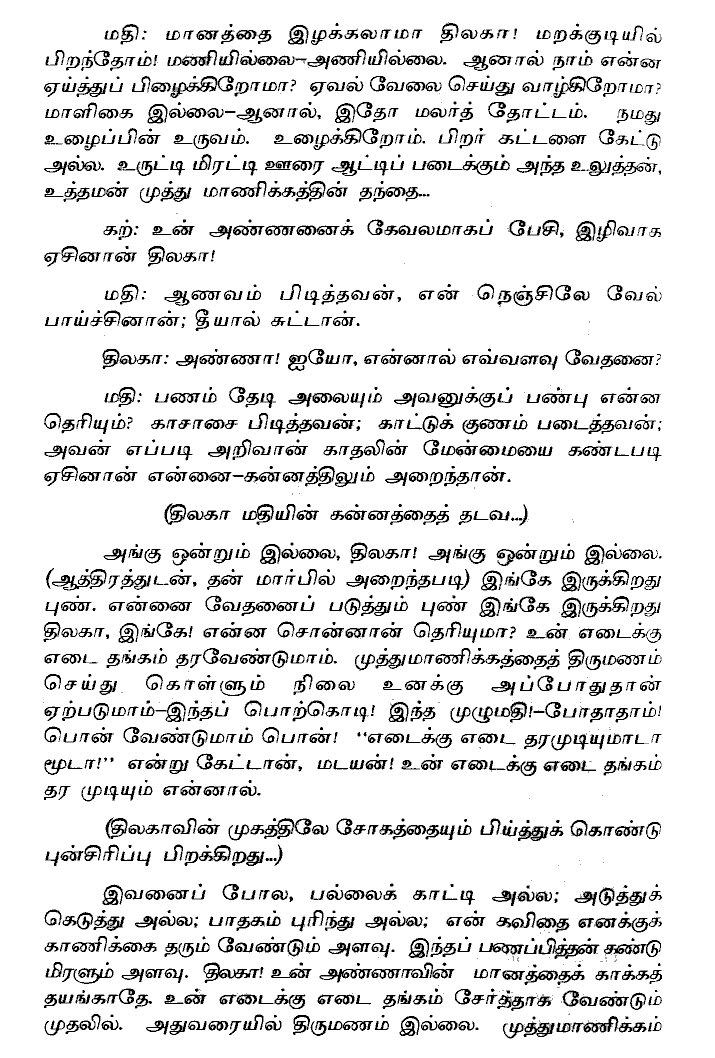 மதி: மானத்தை இழக்கலாமா திலகா! மறக்குடியில்
பிறந்தோம்! மணியில்லை–அணியில்லை. ஆனால் நாம் என்ன
ஏய்த்துப் பிழைக்கிறோமா? ஏவல் வேலை செய்து வாழ்கிறோமா?
மாளிகை இல்லை–ஆனால், இதோ மலர்த் தோட்டம். நமது
உழைப்பின் உருவம். உழைக்கிறோம். பிறர் கட்டளை கேட்டு
அல்ல. உருட்டி மிரட்டி ஊரை ஆட்டிப் படைக்கும் அந்த உலுத்தன்,
உத்தமன் முத்து மாணிக்கத்தின் தந்தை...
கற்: உன் அண்ணனைக் கேவலமாகப் பேசி, இழிவாக
ஏசினான் திலகா!
மதி: ஆணவம் பிடித்தவன், என் நெஞ்சிலே வேல்
பாய்ச்சினான்; தீயால் சுட்டான்.
திலகா: அண்ணா! ஐயோ, என்னால் எவ்வளவு வேதனை?
மதி: பணம் தேடி அலையும் அவனுக்குப் பண்பு என்ன
தெரியும்? காசாசை பிடித்தவன்; காட்டுக் குணம் படைத்தவன்;
அவன் எப்படி அறிவான் காதலின் மேன்மையை கண்டபடி
ஏசினான் என்னை–கன்னத்திலும் அறைந்தான்.
(திலகா மதியின் கன்னத்தைத் தடவ...)
அங்கு ஒன்றும் இல்லை, திலகா! அங்கு ஒன்றும் இல்லை.
(ஆத்திரத்துடன், தன் மார்பில் அறைந்தபடி) இங்கே இருக்கிறது
புண். என்னை வேதனைப் படுத்தும் புண் இங்கே இருக்கிறது
திலகா, இங்கே! என்ன சொன்னான் தெரியுமா? உன் எடைக்கு
எடை தங்கம் தரவேண்டுமாம். முத்துமாணிக்கத்தைத் திருமணம்
செய்து கொள்ளும் நிலை உனக்கு அப்போதுதான்
ஏற்படுமாம்–இந்தப் பொற்கொடி! இந்த முழுமதி!–போதாதாம்!
பொன் வேண்டுமாம் பொன்! “எடைக்கு எடை தரமுடியுமாடா
மூடா!” என்று கேட்டான், மடயன்! உன் எடைக்கு எடை தங்கம்
தர முடியும் என்னால்.
(திலகாவின் முகத்திலே சோகத்தையும் பிய்த்துக் கொண்டு
புன்சிரிப்பு பிறக்கிறது...)
இவனைப் போல, பல்லைக் காட்டி அல்ல; அடுத்துக்
கெடுத்து அல்ல; பாதகம் புரிந்து அல்ல; என் கவிதை எனக்குக்
காணிக்கை தரும் வேண்டும் அளவு. இந்தப் பணப்பித்தன் கண்டு
மிரளும் அளவு. திலகா! உன் அண்ணாவின் மானத்தைக் காக்கத்
தயங்காதே. உன் எடைக்கு எடை தங்கம் சேர்த்தாக வேண்டும்
முதலில். அதுவரையில் திருமணம் இல்லை. முத்துமாணிக்கம்